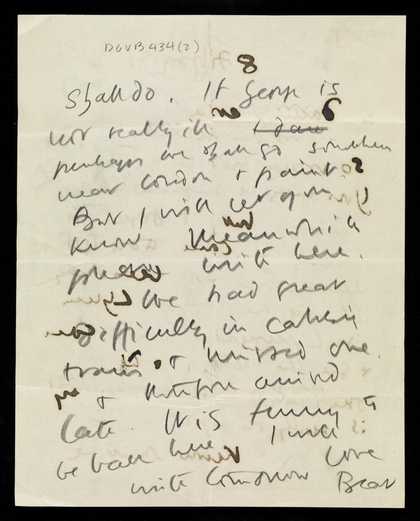 DGVB434(2)
8
shall do. If George is
not really ill
perhaps one shall go somewhere
near London & paint
But I will let you
know Meanwhile
please write here.
We had great
difficulty in catching
trains & missed one.
& therefore arrived
late. It is funny to
be back here I will
write tomorrow Love